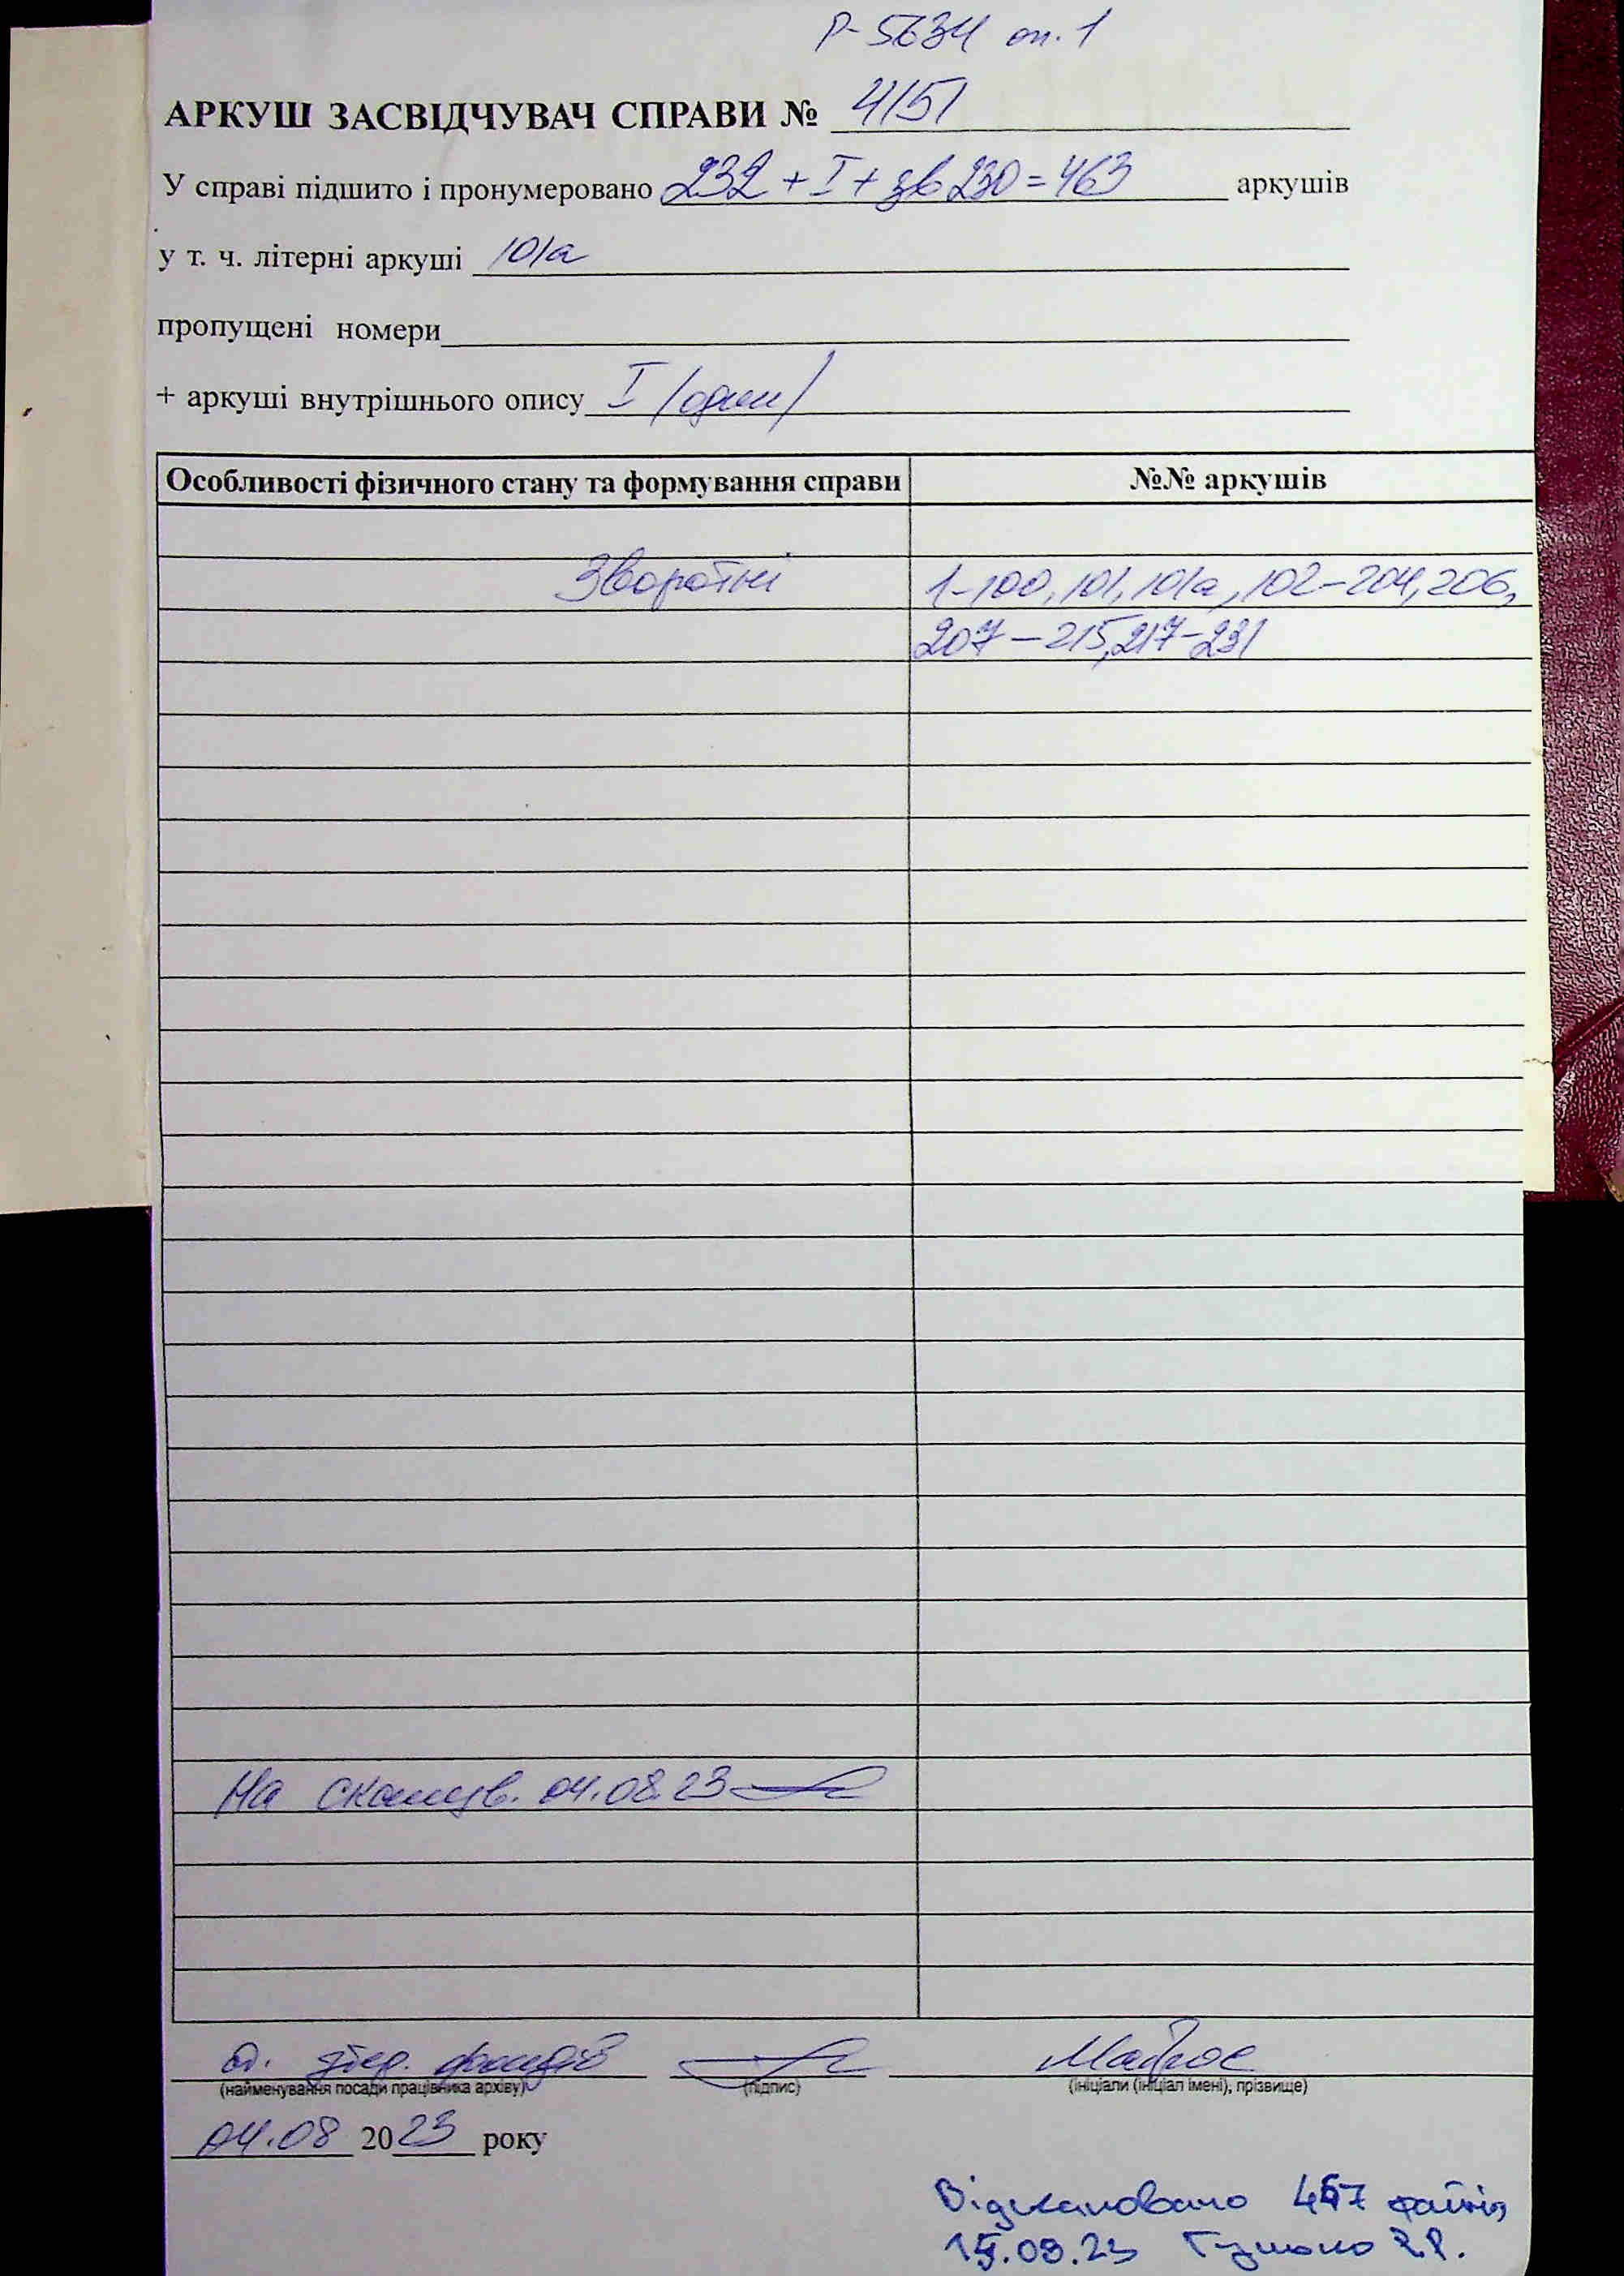 Р-5634 оп. 1
АРКУШ ЗАСВІДЧУВАЧ СПРАВИ № 4151
У справі підшито і пронумеровано 232 + I + зв 230 = 463 аркушів
у т. ч. літерні аркуші 101а
пропущені номери
+ аркуші внутрішнього опису I /один/
Особливості фізичного стану та формування справи №№ аркушів
Зворотні 1-100, 101, 101а, 102-204, 206,
207-215, 217-231
На сканув. 04.08.23
зб. фондів
(найменування посади працівника архіву) (підпис) (ініціали (ініціал імені), прізвище)
04.08 2023 року
Відскановано файлів